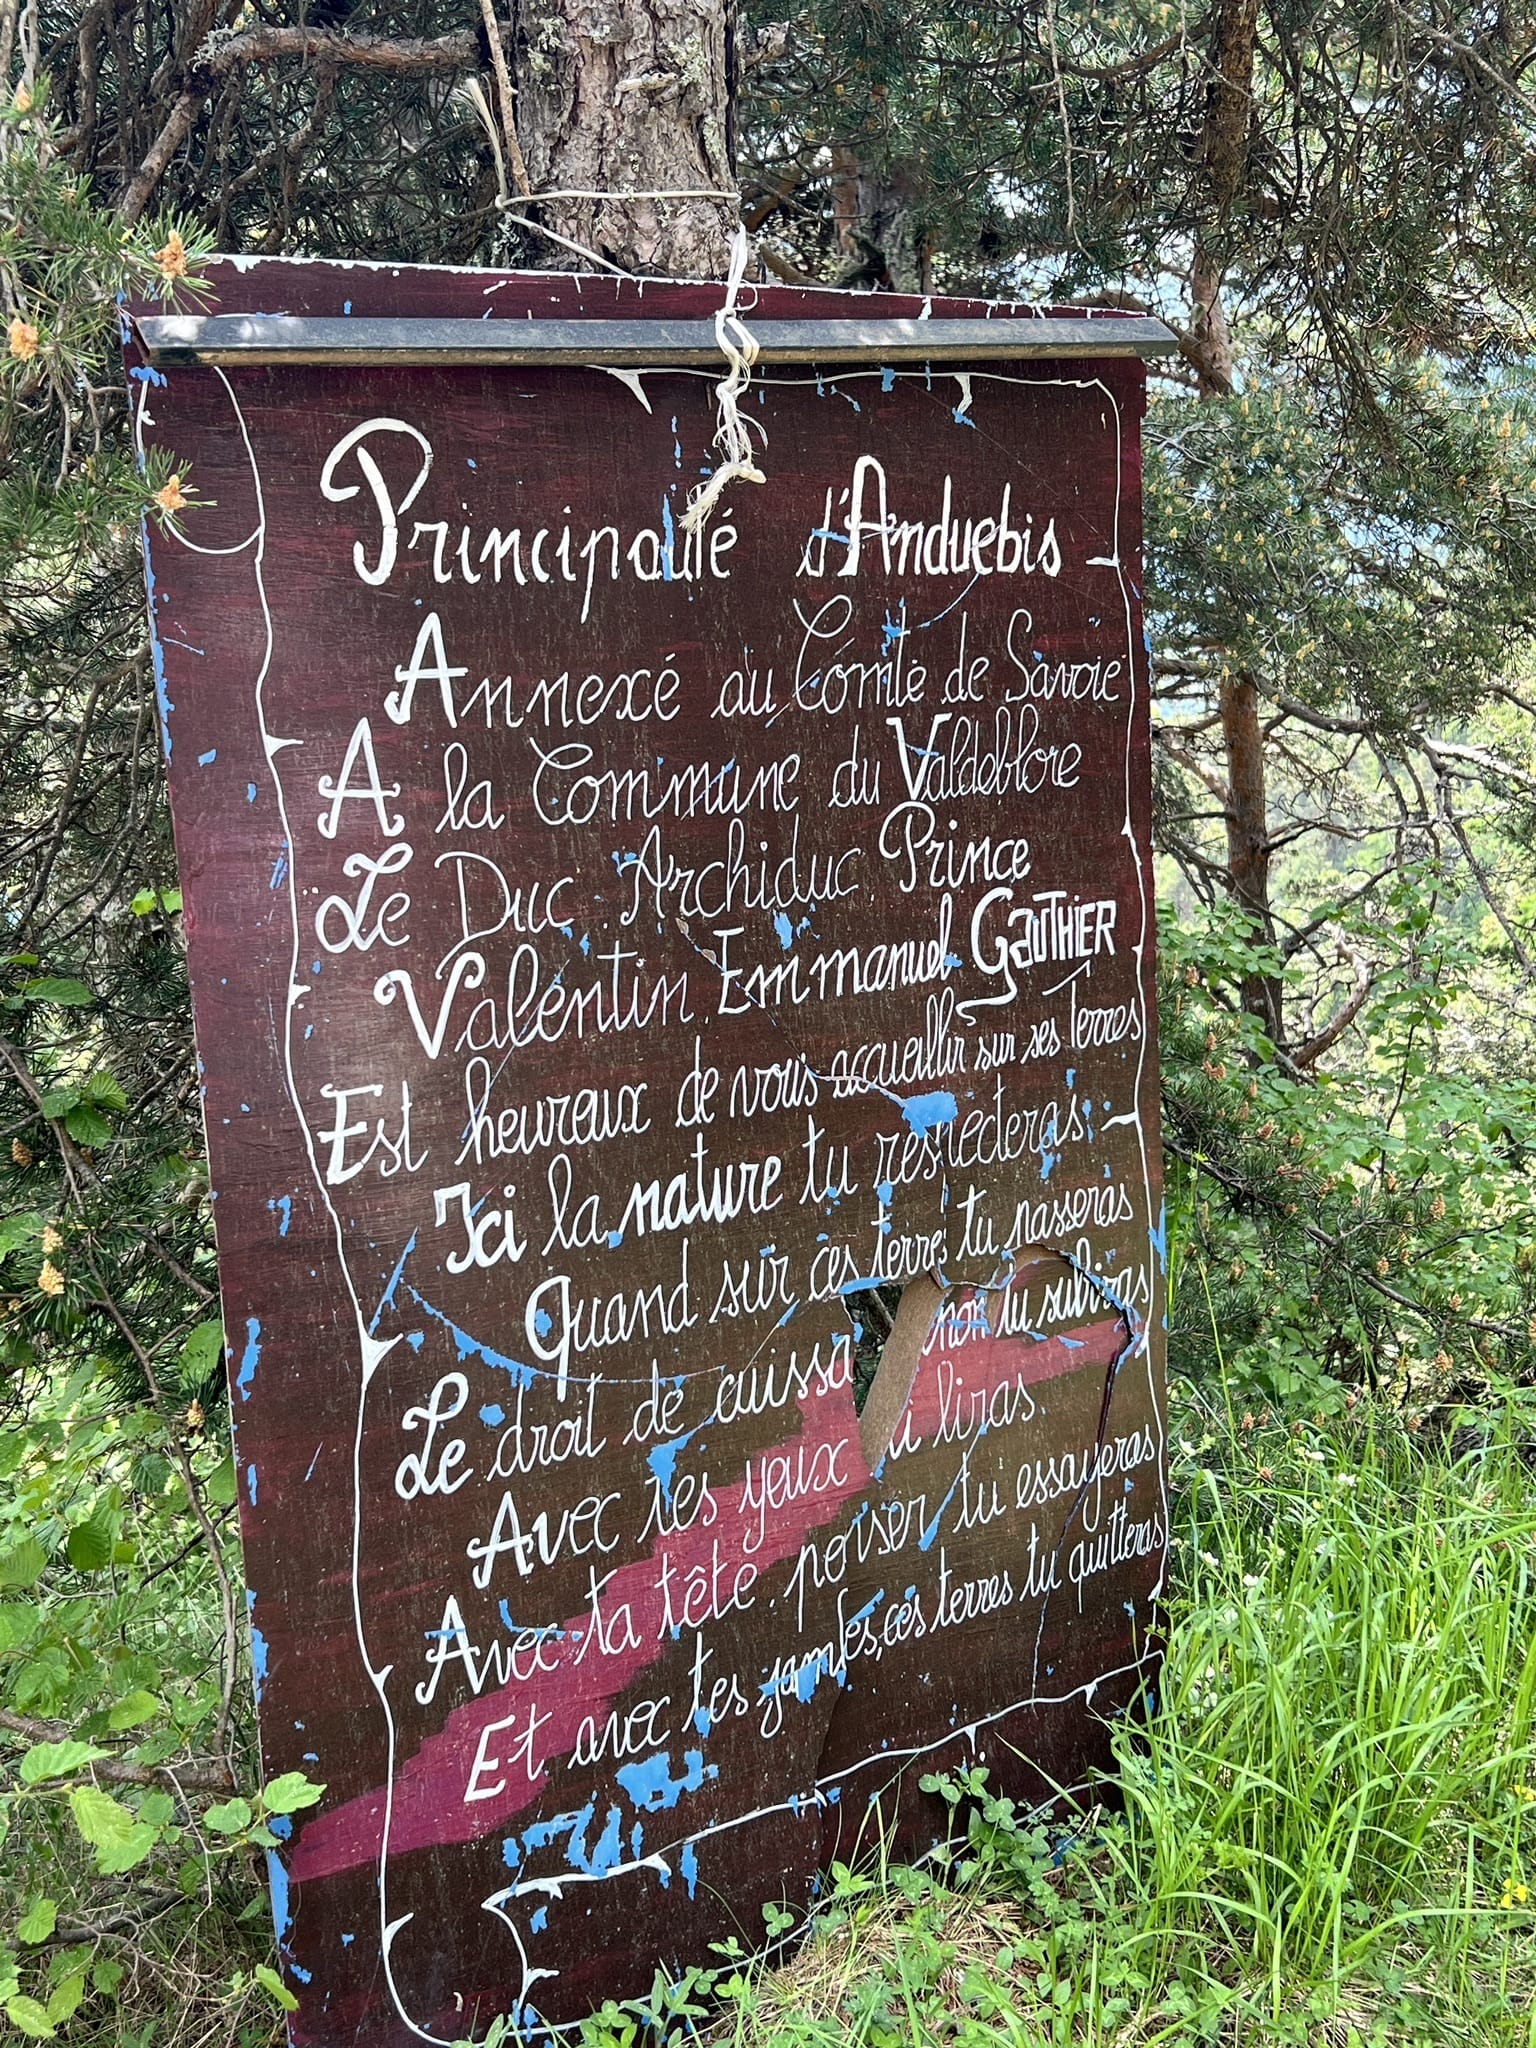 Principauté d'Anduebis
Annexé au Comté de Savoie
A la Commune du Valdeblore
Le Duc Archiduc Prince
Valentin Emmanuel Gauthier
Est heureux de vous accueillir sur ses Terres
Ici la nature tu respecteras.
Quand sur ces terres tu passeras
Le droit de cuissa non tu subiras
Avec tes yeux tu liras.
Avec ta tête penser tu essayeras
Et avec tes jambes, ces terres tu quitteras